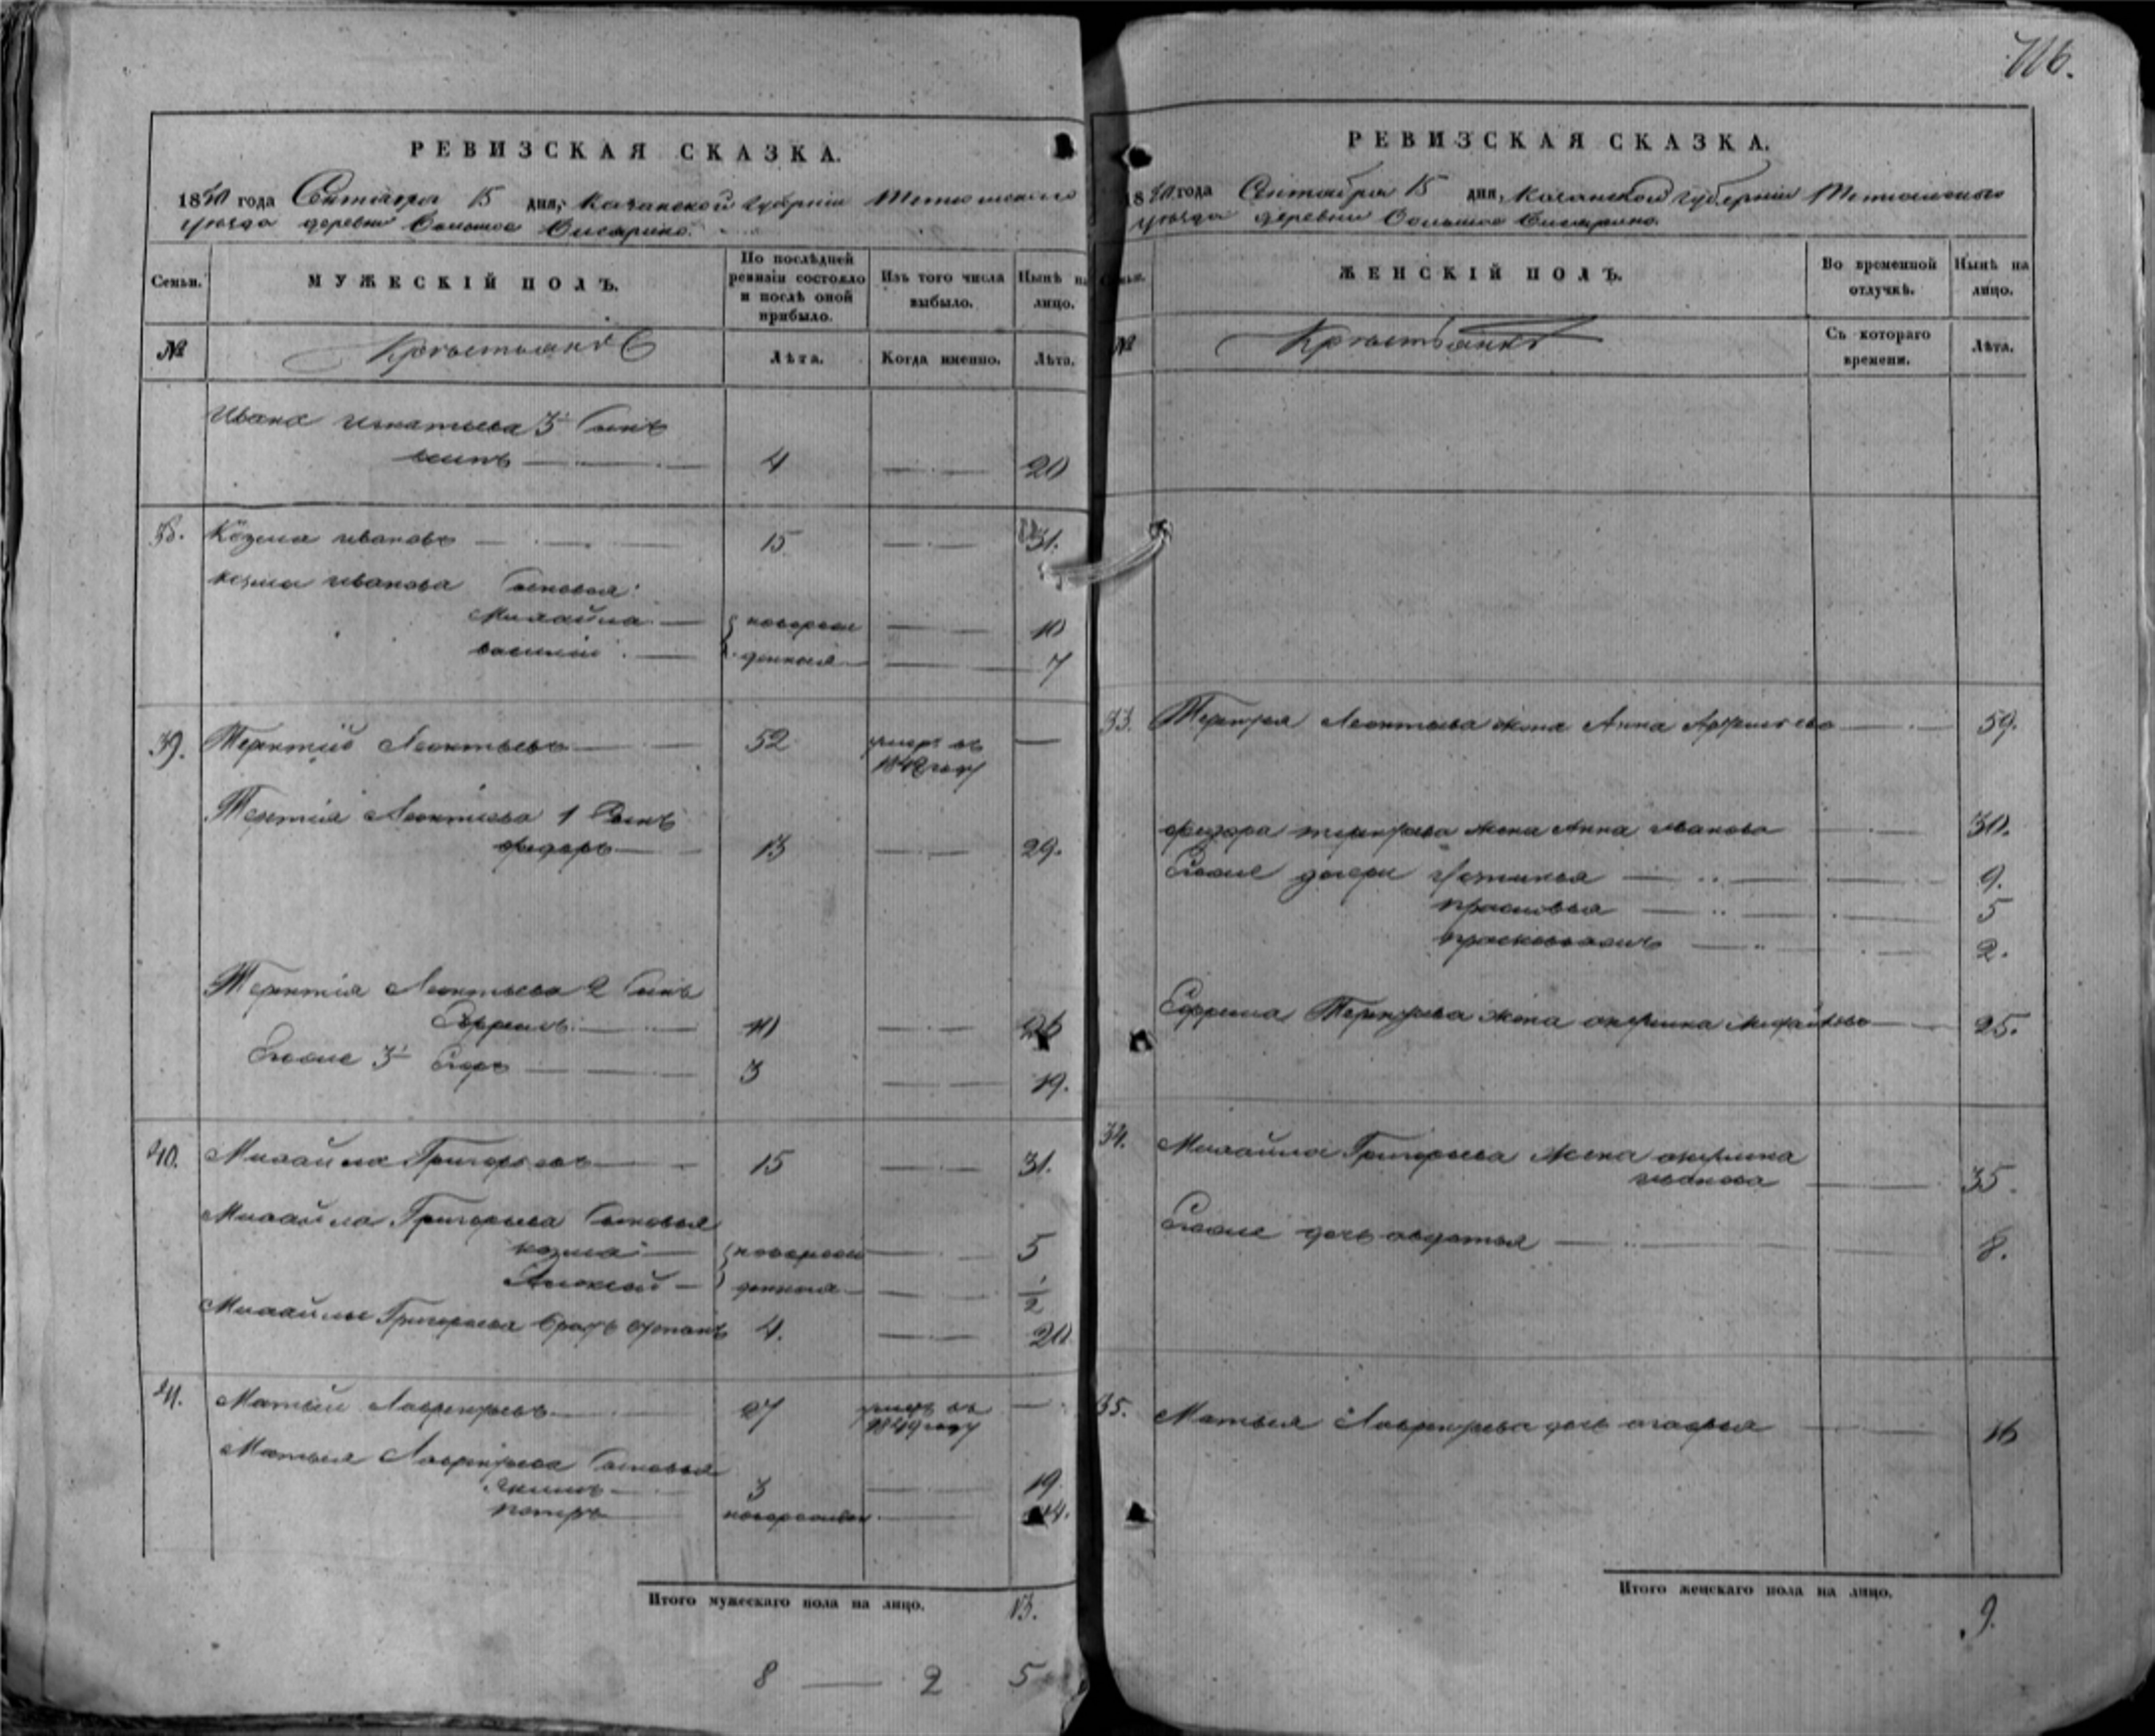 716.
РЕВИЗСКАЯ СКАЗКА.
1850 года Сентября 15 дня, Казанской губернии Тетюшского
уезда деревни Большое
Семьи.
МУЖЕСКІЙ ПОЛЪ.
По послѣдней ревизіи состояло и послѣ оной прибыло.
Изъ того числа выбыло.
Нынѣ на лицо.
№
Крестьянъ
Лѣта.
Когда именно.
Лѣта.
Ивана Игнатьева 3й сынъ
4 20
Козма Ивановъ 15 31.
Козмы Иванова сыновья:
Михайла новорож 10
Василий денныя 7
39. Терентий Леонтьевъ 52 умеръ въ
году
Терентия Леонтьева 1 сынъ
Федоръ 13 29.
Терентия Леонтьева 2 сынъ
Ефремъ 10 26
Егоже 3й Егоръ 3 19.
40. Михайла Григорьевъ 15 31.
Михайла Григорьева сыновья
Козма новорож 5
Алексей денныя 1/2
Михайлы Григорьева братъ 4. 20
41. Матвей Лаврентьевъ 27 умеръ въ
1849 году
Матвея Лаврентьева сыновья
Якимъ 3 19
Петръ новорожден 14.
Итого мужескаго пола на лицо. 13.
8 — 2 5
РЕВИЗСКАЯ СКАЗКА.
1850 года Сентября 15 дня, Казанской губернии Тетюшского
уезда деревни Большое
Семьи.
ЖЕНСКІЙ ПОЛЪ.
Во временной отлучкѣ.
Нынѣ на лицо.
№
Крестьянъ
Съ котораго времени.
Лѣта.
33. Терентья Леонтьева жена Анна 59.
Федора Терентьева жена Анна Иванова 30.
Егоже дочери Устинья 9.
5
2.
Ефрема Терентьева жена Акулина 25.
34. Михайла Григорьева жена Акулина
Иванова 35.
Егоже дочь Авдотья 8.
35. Матвея Лаврентьева дочь Агафья 16
Итого женскаго пола на лицо.
9.